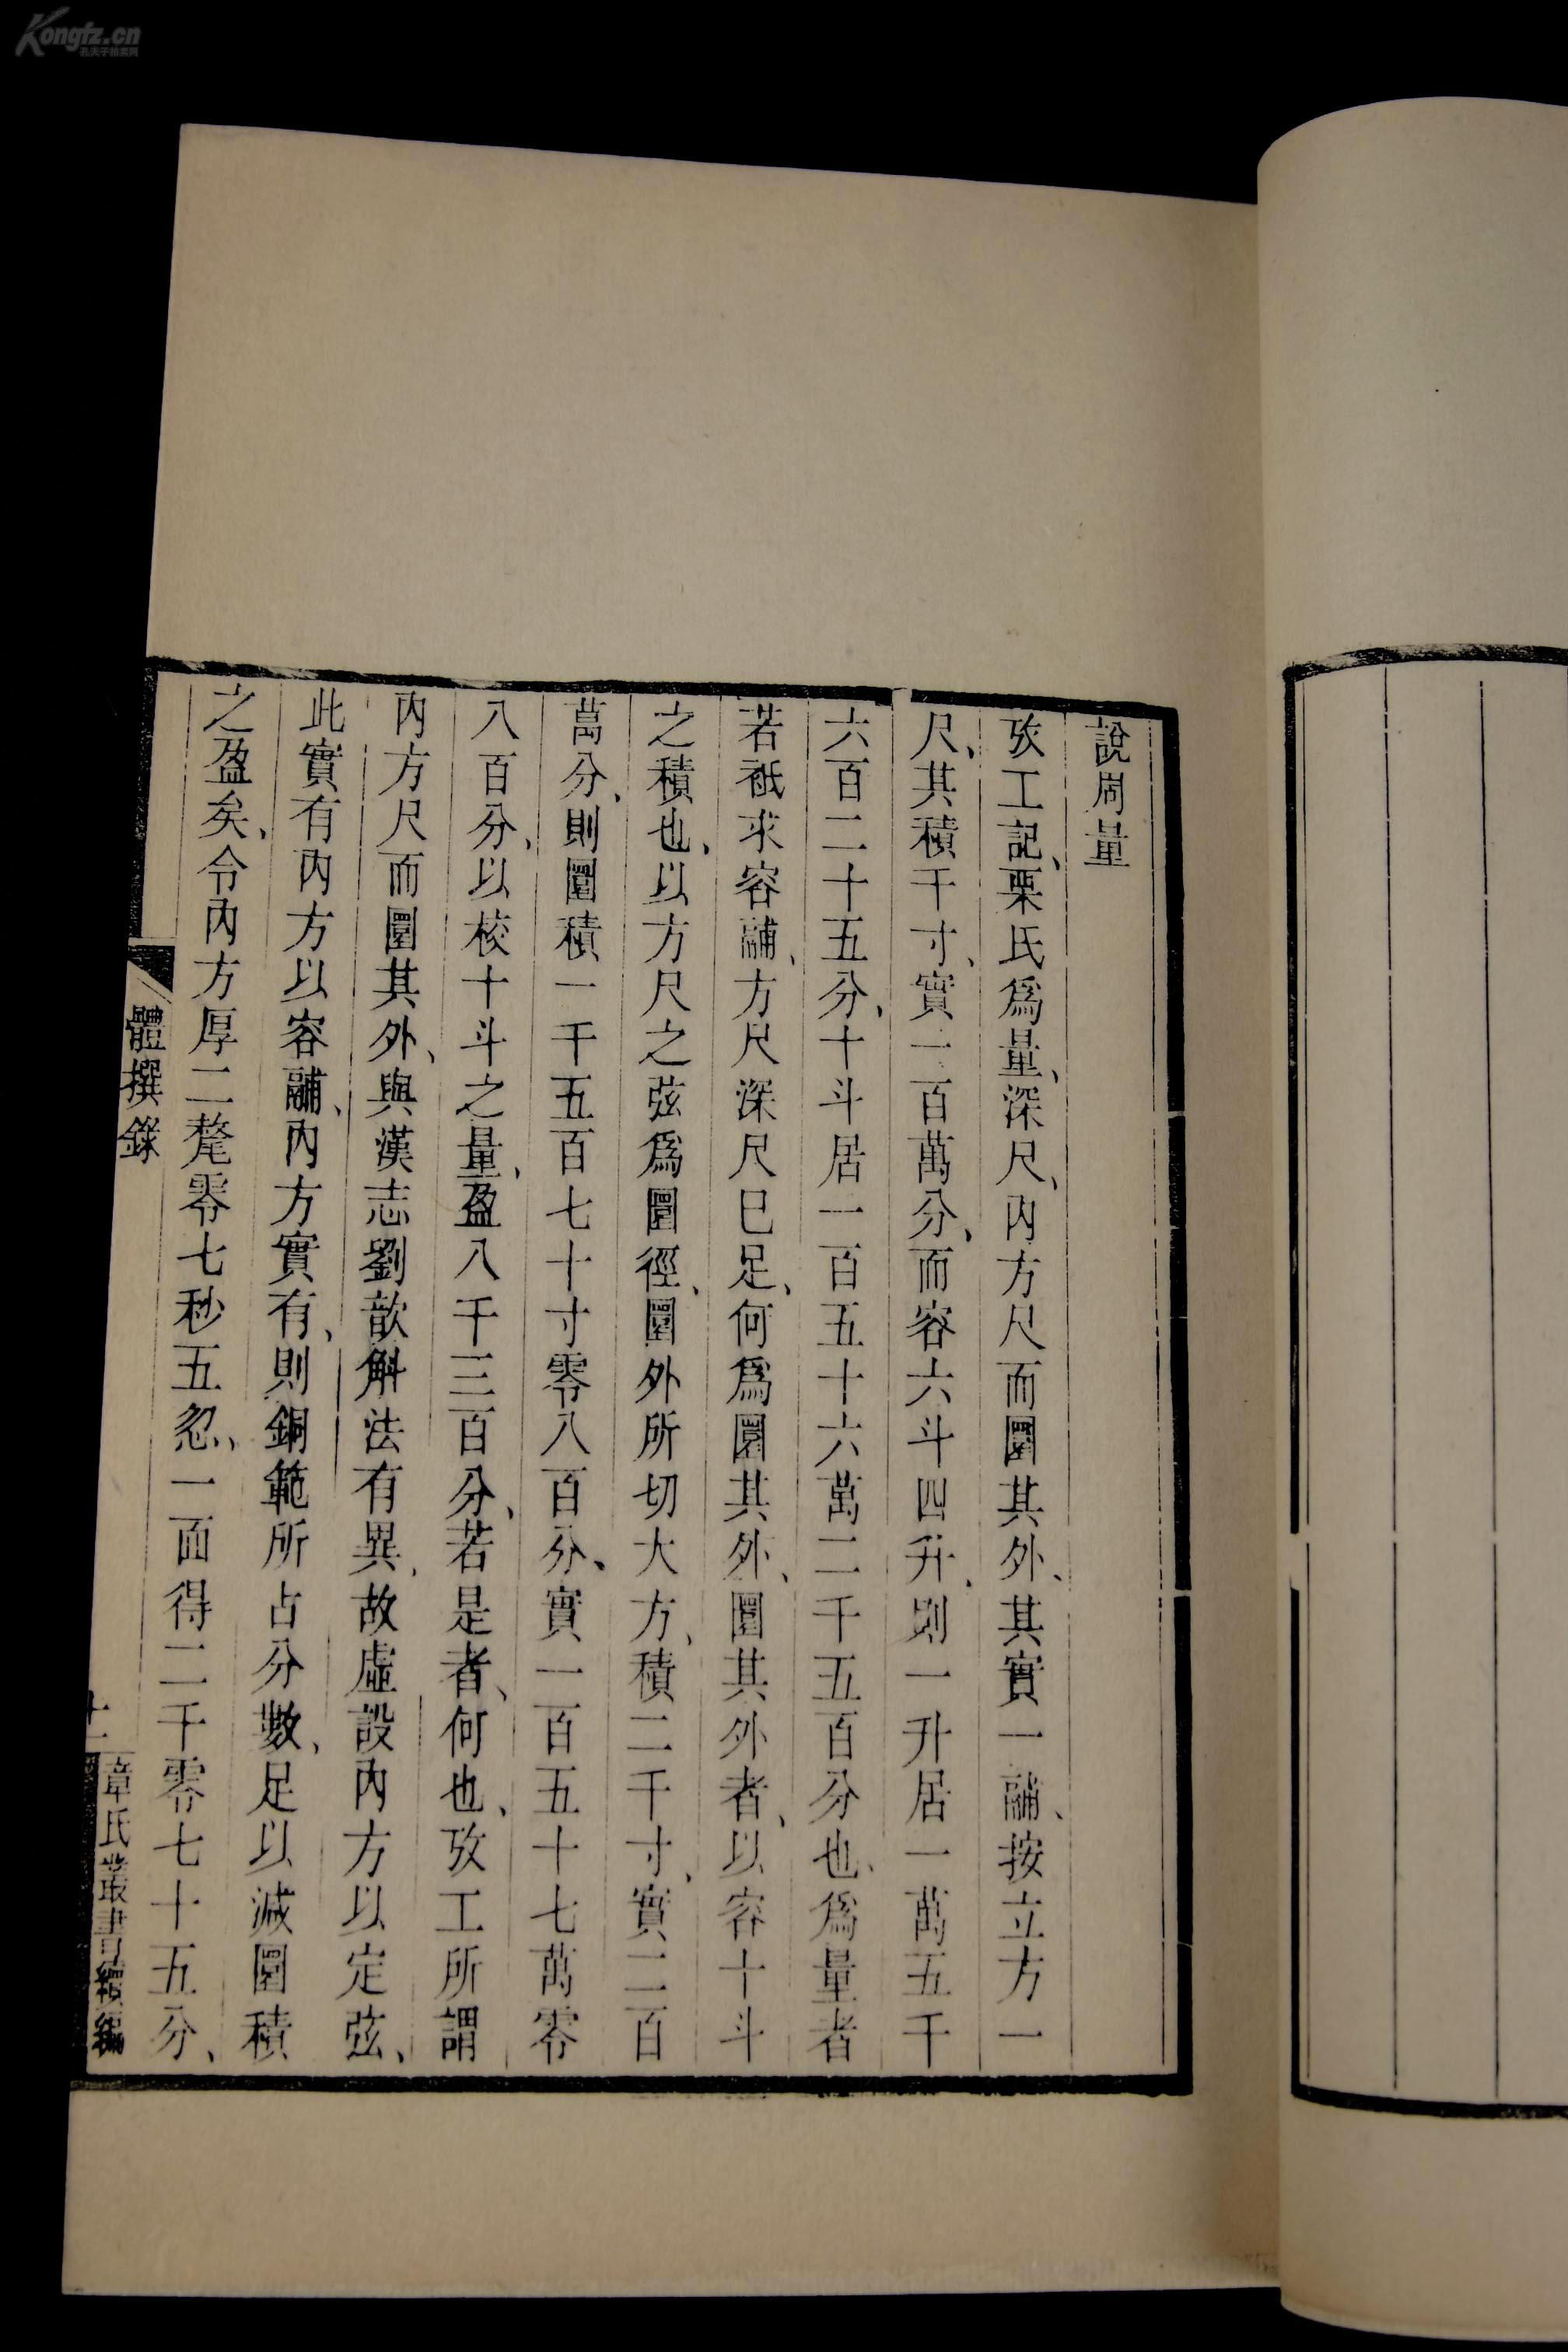 說周量
攷工記、㮚氏爲量、深尺、內方尺而圜其外、其實一鬴、按立方一
尺、其積千寸、實一百萬分、而容六斗四升、則一升居一萬五千
六百二十五分、十斗居一百五十六萬二千五百分也、爲量者
若祇求容鬴、方尺深尺已足、何爲圜其外、圜其外者、以容十斗
之積也、以方尺之弦爲圜徑、圜外所切大方、積二千寸、實二百
萬分、則圜積一千五百七十寸零八百分、實一百五十七萬零
八百分、以校十斗之量、盈八千三百分、若是者、何也、攷工所謂
內方尺而圜其外、與漢志劉歆斛法有異、故虛設內方以定弦、
此實有內方以容鬴、內方實有、則銅範所占分數、足以減圜積
之盈矣、令內方厚二氂零七秒五忽、一面得二千零七十五分、
體撰錄
十一
章氏叢書續編
Kongfz.cn
孔夫子拍卖网